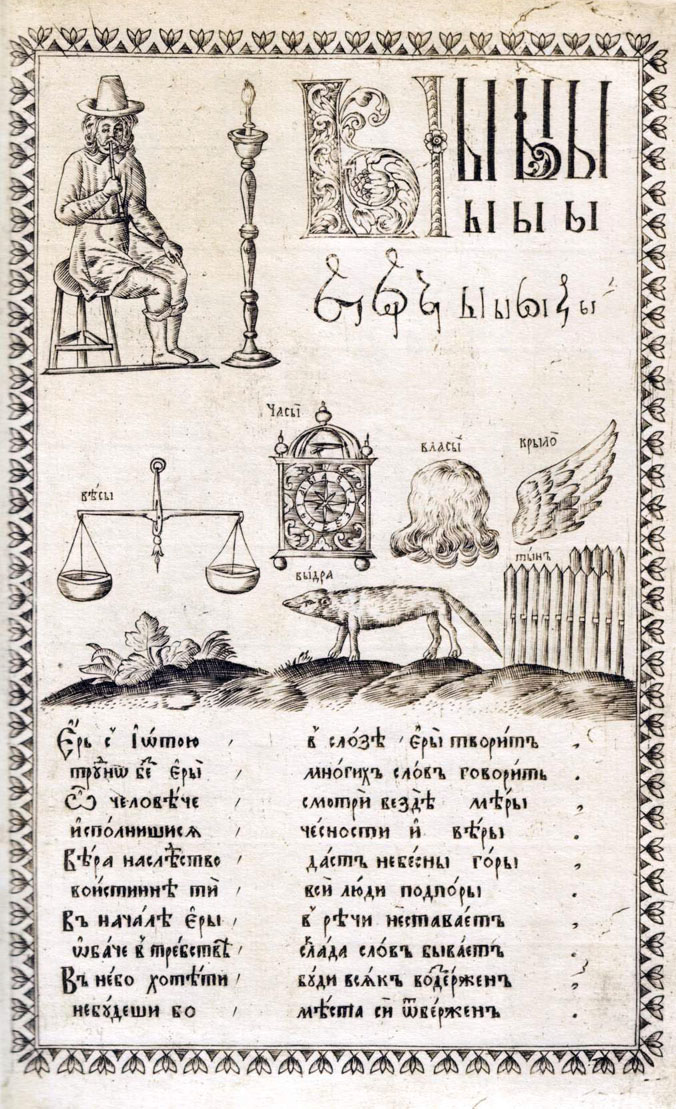 Ы Ы Ы Ы
Ы Ы Ы
Ы Ы Ы Ы
часы̀
вѣ́сы
власы̀
крыло̀
вы́дра
тынъ
Е҆́рь с̾ І҆ѡ́тою , в̾ сло́зѣ є҆ры̀ твори́тъ ,
є҆ры̀ мно́гихъ сло́въ говори́тъ .
Ѽ человѣ́че смотрѝ вездѣ̀ мѣ́ры ,
и҆спо́лнишисѧ че́сности и҆ вѣ́ры .
Вѣ́ра наслѣ́ство , да́стъ небе́сны го́ры .
вои́стиннѣ тѝ всѝ лю́ди подпо́ры .
Въ нача́лѣ є҆ры̀ , в̾ рѣ́чи нестава́етъ ,
ѻ҆ба́че в̾ тре́бствѣ , скла́да сло́въ быва́етъ .
Въ не́бо хотѣ́ти , бу́ди всѧ́къ водⷣе́рженъ ,
небу́деши бо мѣ́ста сѝ ѿве́рженъ .